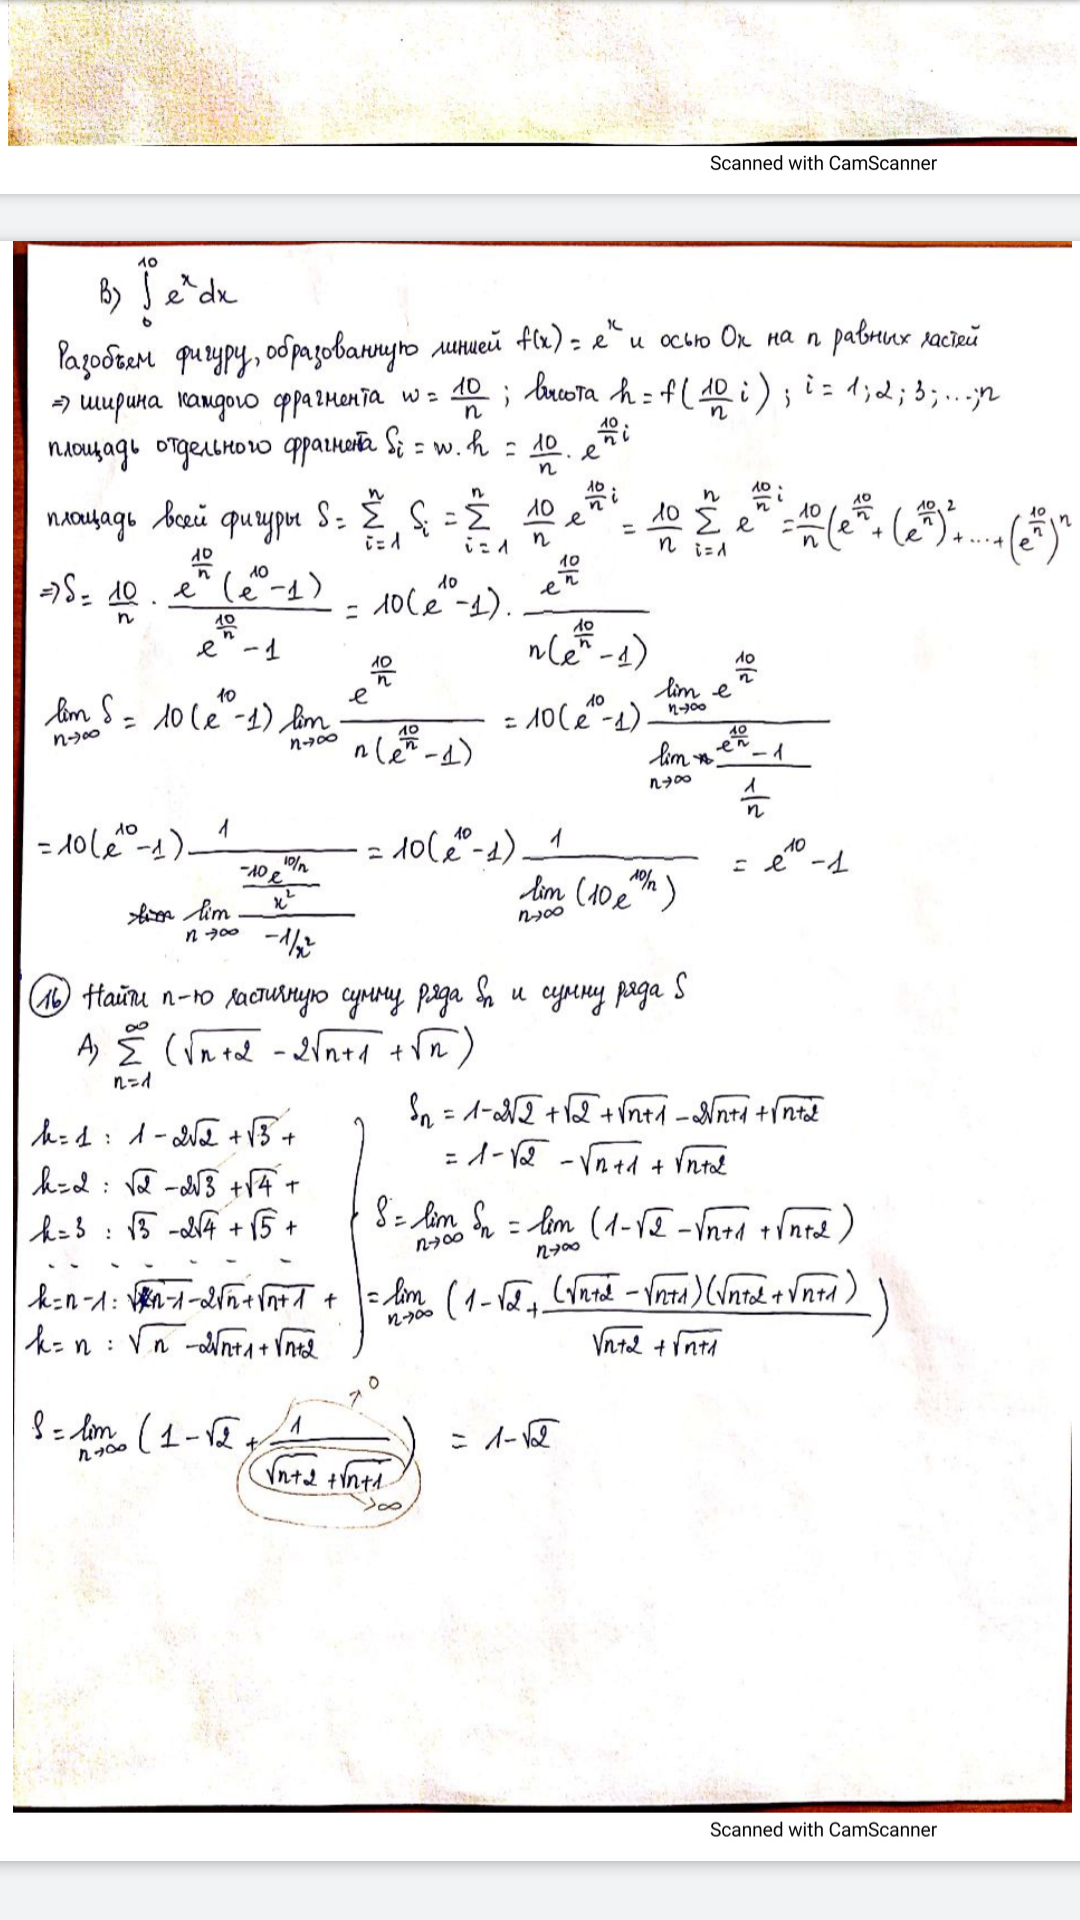 Scanned with CamScanner
B) ∫₀¹⁰ eˣ dx
Разобьем фигуру, образованную линией f(x) = eˣ и осью Ox на n равных частей
⇒ ширина каждого фрагмента w = 10/n ; высота h = f(10/n i) ; i = 1; 2; 3; ...; n
площадь отдельного фрагмента Sᵢ = w.h = 10/n · e^(10/n i)
площадь всей фигуры S = Σ_{i=1}^{n} Sᵢ = Σ_{i=1}^{n} 10/n e^(10/n i) = 10/n Σ_{i=1}^{n} e^(10/n i) = 10/n (e^(10/n) + (e^(10/n))² + ... + (e^(10/n))ⁿ
⇒ S = 10/n · e^(10/n) (e¹⁰ - 1) / (e^(10/n) - 1) = 10(e¹⁰ - 1) · e^(10/n) / (n(e^(10/n) - 1))
lim_{n→∞} S = 10(e¹⁰ - 1) lim_{n→∞} e^(10/n) / (n(e^(10/n) - 1)) = 10(e¹⁰ - 1) lim_{n→∞} e^(10/n) / (lim_{n→∞} (e^(10/n) - 1) / (1/n))
= 10(e¹⁰ - 1) · 1 / (lim_{n→∞} (-10e^(10/n) / x²) / (-1/x²)) = 10(e¹⁰ - 1) · 1 / (lim_{n→∞} (10e^(10/n))) = e¹⁰ - 1
16) Найти n-ю частичную сумму ряда Sₙ и сумму ряда S
A) Σ_{n=1}^{∞} (√(n+2) - 2√(n+1) + √n)
k=1 : 1 - 2√2 + √3 +
k=2 : √2 - 2√3 + √4 +
k=3 : √3 - 2√4 + √5 +
. . . . - - - -
k=n-1 : √(n-1) - 2√n + √(n+1) +
k=n : √n - 2√(n+1) + √(n+2)
Sₙ = 1 - 2√2 + √2 + √(n+1) - 2√(n+1) + √(n+2)
= 1 - √2 - √(n+1) + √(n+2)
S = lim_{n→∞} Sₙ = lim_{n→∞} (1 - √2 - √(n+1) + √(n+2))
= lim_{n→∞} (1 - √2 + (√(n+2) - √(n+1))(√(n+2) + √(n+1)) / (√(n+2) + √(n+1)))
S = lim_{n→∞} (1 - √2 + 1 / (√(n+2) + √(n+1))) = 1 - √2
→ 0
→ ∞
Scanned with CamScanner